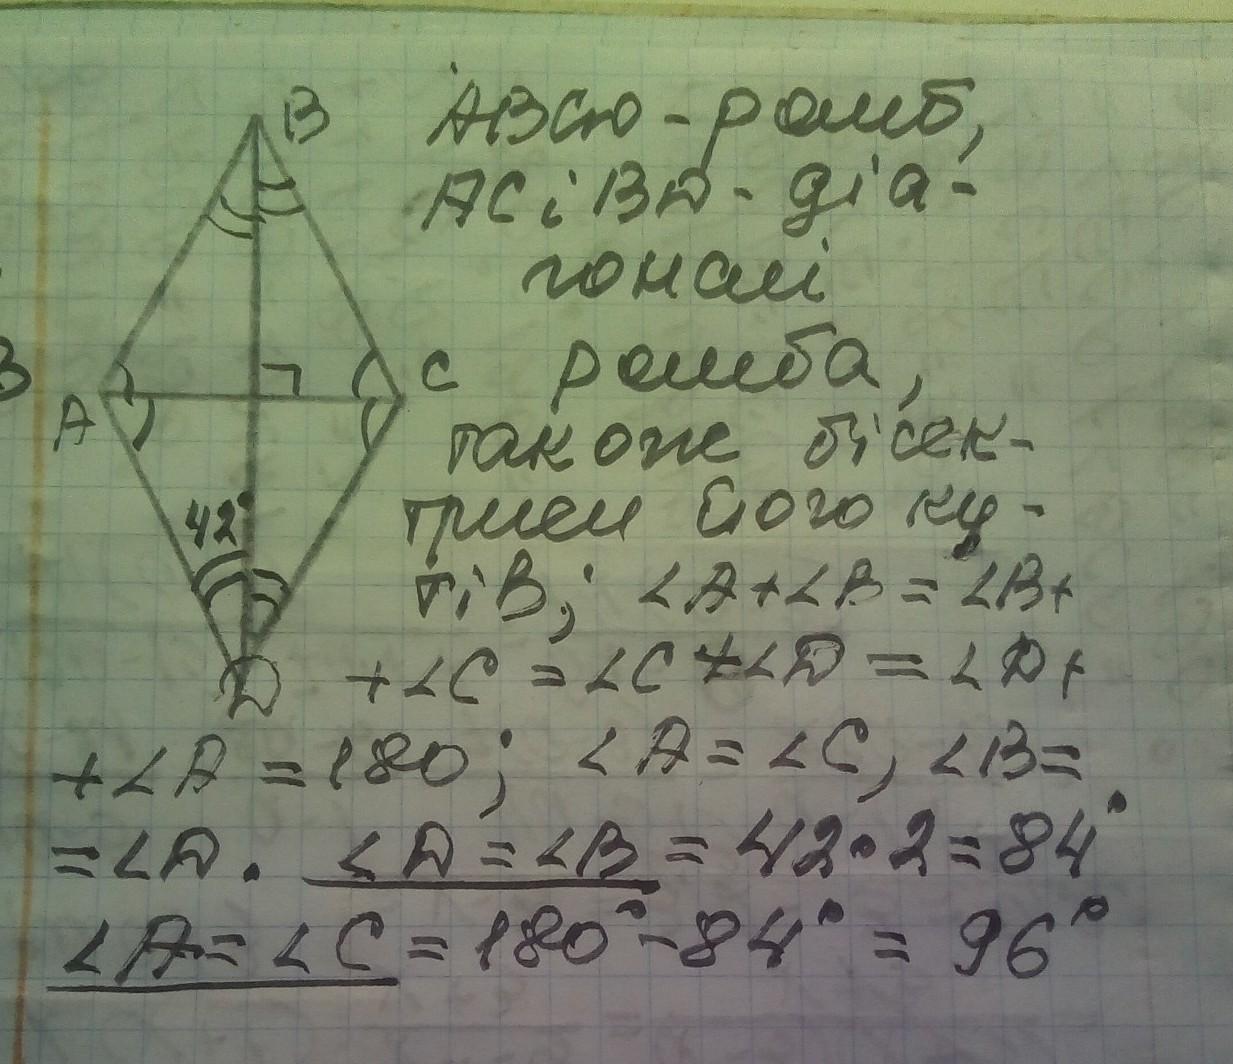 B
ABCD - ромб,
AC і BD - діа-
гоналі
C ромба,
A
також бісек-
42°
триси його ку-
тів; ∠A+∠B = ∠B+
D +∠C = ∠C+∠D = ∠D+
+∠A = 180; ∠A = ∠C, ∠B =
= ∠D. ∠D = ∠B = 42·2 = 84°
∠A = ∠C = 180° - 84° = 96°